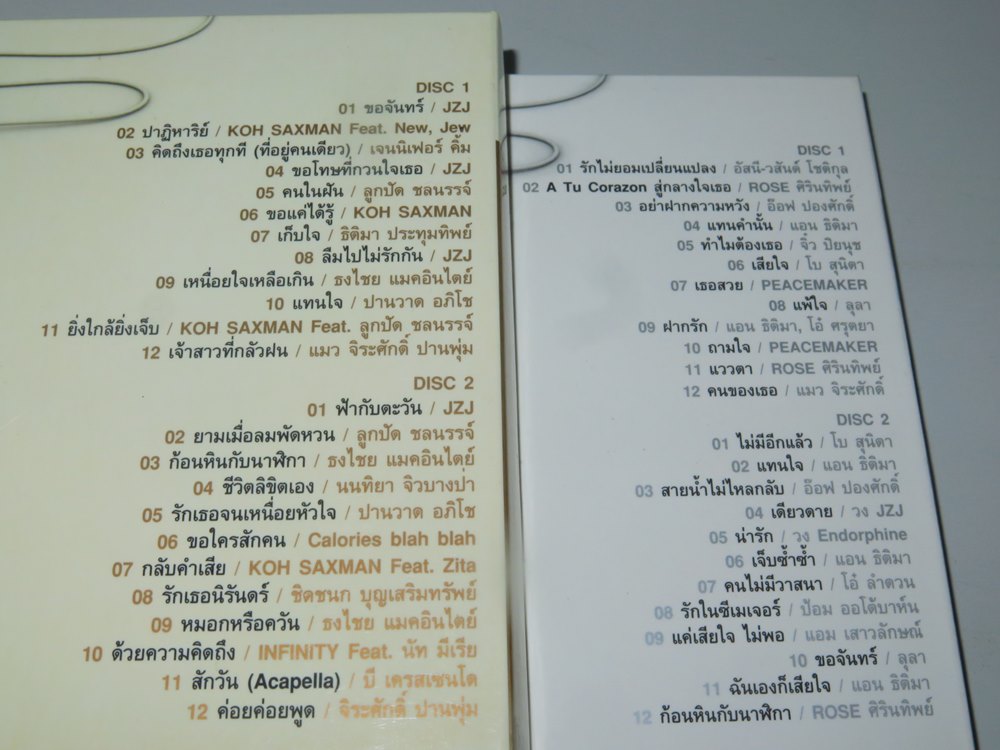 DISC 1
01 ขอจันทร์ / JZJ
02 ปาฏิหาริย์ / KOH SAXMAN Feat. New, Jew
03 คิดถึงเธอทุกที (ที่อยู่คนเดียว) / เจนนิเฟอร์ คิ้ม
04 ขอโทษที่กวนใจเธอ / JZJ
05 คนในฝัน / ลูกปัด ชลนรรจ์
06 ขอแค่ได้รู้ / KOH SAXMAN
07 เก็บใจ / ธิติมา ประทุมทิพย์
08 ลืมไปไม่รักกัน / JZJ
09 เหนื่อยใจเหลือเกิน / ธงไชย แมคอินไตย์
10 แทนใจ / ปานวาด อภิโช
11 ยิ่งใกล้ยิ่งเจ็บ / KOH SAXMAN Feat. ลูกปัด ชลนรรจ์
12 เจ้าสาวที่กลัวฝน / แมว จิระศักดิ์ ปานพุ่ม
DISC 2
01 ฟ้ากับตะวัน / JZJ
02 ยามเมื่อลมพัดหวน / ลูกปัด ชลนรรจ์
03 ก้อนหินกับนาฬิกา / ธงไชย แมคอินไตย์
04 ชีวิตลิขิตเอง / นนทิยา จิวบางปา
05 รักเธอจนเหนื่อยหัวใจ / ปานวาด อภิโช
06 ขอใครสักคน / Calories blah blah
07 กลับคำเสีย / KOH SAXMAN Feat. Zita
08 รักเธอนิรันดร์ / ชิดชนก บุญเสริมทรัพย์
09 หมอกหรือควัน / ธงไชย แมคอินไตย์
10 ด้วยความคิดถึง / INFINITY Feat. นัท มีเรีย
11 สักวัน (Acapella) / บี เครสเซนโด
12 ค่อยค่อยพูด / จิระศักดิ์ ปานพุ่ม
DISC 1
01 รักไม่ยอมเปลี่ยนแปลง / อัสนี-วสันต์ โชติกุล
02 A Tu Corazon สู่กลางใจเธอ / ROSE ศิรินทิพย์
03 อย่าฝากความหวัง / อ๊อฟ ปองศักดิ์
04 แทนคำนั้น / แอน ธิติมา
05 ทำไมต้องเธอ / จิ๋ว ปิยนุช
06 เสียใจ / โบ สุนิตา
07 เธอสวย / PEACEMAKER
08 แพ้ใจ / ลุลา
09 ฝากรัก / แอน ธิติมา, โอ๋ ศรุตยา
10 ถามใจ / PEACEMAKER
11 แววตา / ROSE ศิรินทิพย์
12 คนของเธอ / แมว จิระศักดิ์
DISC 2
01 ไม่มีอีกแล้ว / โบ สุนิตา
02 แทนใจ / แอน ธิติมา
03 สายน้ำไม่ไหลกลับ / อ๊อฟ ปองศักดิ์
04 เดียวดาย / วง JZJ
05 น่ารัก / วง Endorphine
06 เจ็บซ้ำซ้ำ / แอน ธิติมา
07 คนไม่มีวาสนา / โอ๋ ลำดวน
08 รักในซีเมเจอร์ / ป้อม ออโต้บาห์น
09 แค่เสียใจ ไม่พอ / แอม เสาวลักษณ์
10 ขอจันทร์ / ลุลา
11 ฉันเองก็เสียใจ / แอน ธิติมา
12 ก้อนหินกับนาฬิกา / ROSE ศิรินทิพย์